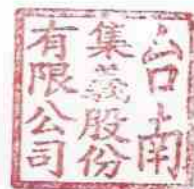 台南
集義股份
有限公司